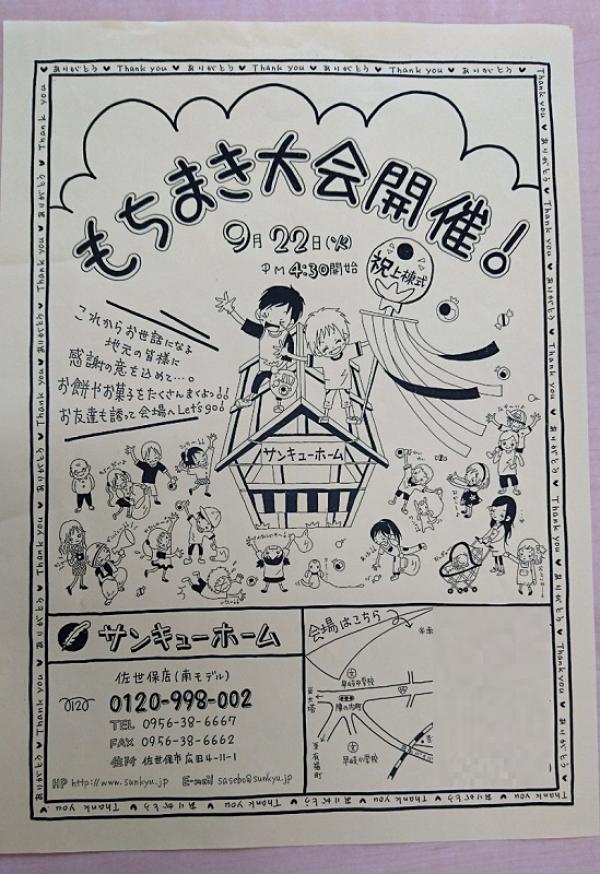 ありがとう ♥ Thank you ♥ ありがとう ♥ Thank you ♥ ありがとう ♥ Thank you ♥ ありがとう
もちまき大会開催!
9月22日(火)
PM 4:30開始
祝上棟式
これからお世話になる
地元の皆様に
感謝の意を込めて…。
お餅やお菓子をたくさんまくよっ!!
お友達も誘って会場へLet's go!
サンキューホーム
サンキューホーム
佐世保店(南モデル)
0120-998-002
TEL 0956-38-6667
FAX 0956-38-6662
住所 佐世保市広田4-11-1
HP http://www.sunkyu.jp E-mail sasebo@sunkyu.jp
会場はこちら
早岐中学校
陣の内町
早岐小学校
至有福町